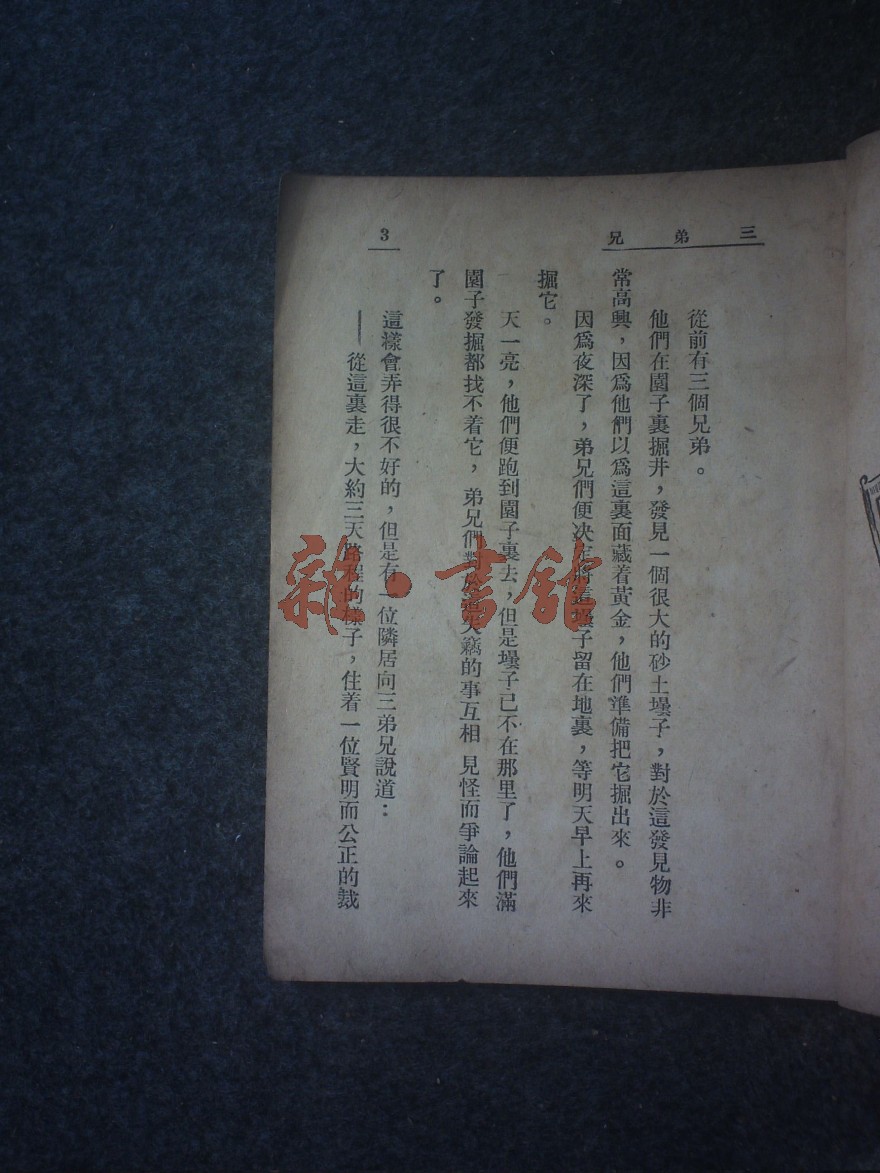 三弟兄
3
從前有三個兄弟。
他們在園子裏掘井，發見一個很大的砂土罎子，對於這發見物非
常高興，因爲他們以爲這裏面藏着黃金，他們準備把它掘出來。
因爲夜深了，弟兄們便決定將這罎子留在地裏，等明天早上再來
掘它。
天一亮，他們便跑到園子裏去，但是罎子已不在那里了，他們滿
園子發掘都找不着它，弟兄們對於這失竊的事互相見怪而爭論起來
了。
這樣會弄得很不好的，但是有一位隣居向三弟兄說道：
——從這裏走，大約三天路程的樣子，住着一位賢明而公正的裁
雜·書館